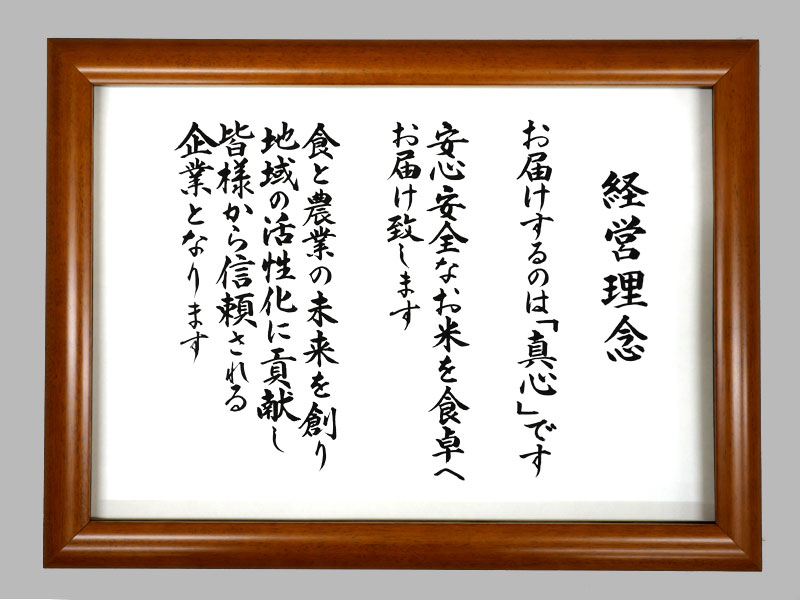 経営理念
お届けするのは「真心」です
安心安全なお米を食卓へ
お届け致します
食と農業の未来を創り
地域の活性化に貢献し
皆様から信頼される
企業となります